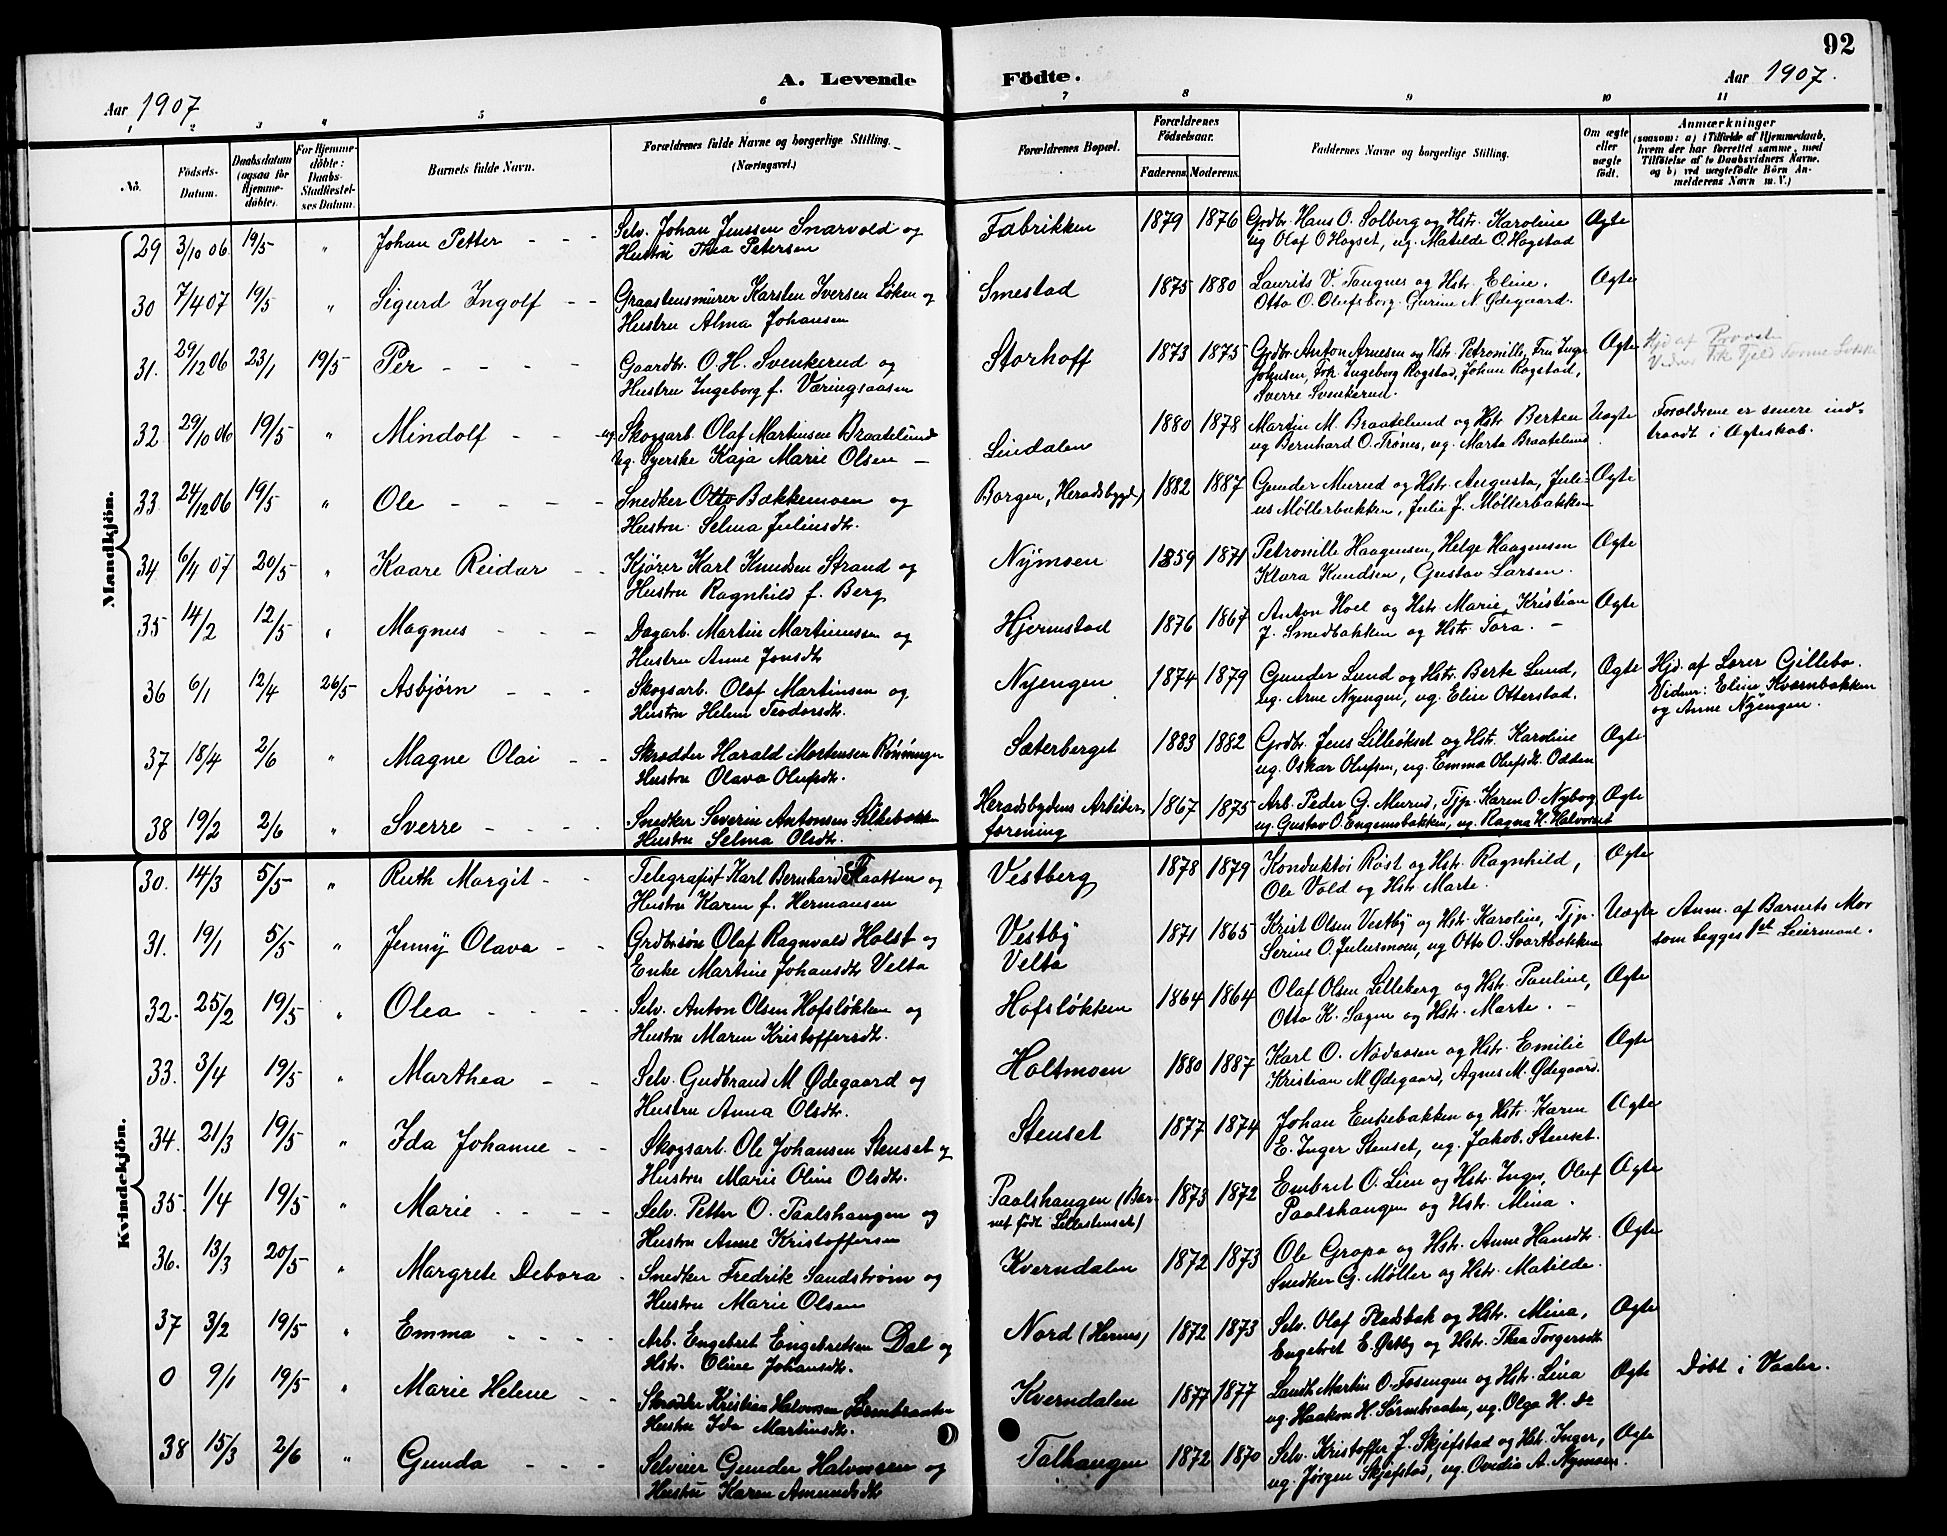 92
A. Levende Födte.
Aar 1907
Aar 1907.
1 2 3 4 5 6 7 8 9 10 11
No.
Födsels-Datum.
Daabsdatum (ogsaa for Hjemme-döbte).
For Hjemme-döbte: Daabs-Stadfæstel-ses Datum.
Barnets fulde Navn.
Forældrenes fulde Navne og borgerlige Stilling. (Næringsvei.)
Forældrenes Bopæl.
Forældrenes Födselsaar.
Faderens. Moderens.
Faddernes Navne og borgerlige Stilling.
Om ægte eller uægte födt.
Anmærkninger
(saasom: a) i Tilfælde af Hjemmedaab, hvem der har forrettet samme, med Tilföielse af to Daabsvidners Navne. og b) ved uægtefödte Börn An-melderens Navn m. V.)
Mandkjön.
29 3/10 06 19/5 " Johan Petter - - - Selv. Johan Jenssen Snarvold og Fabrikken 1879 1876 Grdbr. Hans O. Solberg og Hstr. Karoline Ægte
Hustru Thea Petersen ug Olaf O Hagset, ug. Matilde O. Hagstad
30 7/4 07 19/5 " Sigurd Ingolf - - Graastensmürer Karsten Iversen Løken og Smestad 1875 1880 Laurits V. Tangnes og Hstr. Eline. Ægte
Hustru Alma Johansen Otto O. Olufsborg. Gurine N. Ødegaard.
31. 29/12 06 23/1 19/5 Per - - - - Gaardbr. O. H. Svenkerud og Storhoff 1873 1875 Grdbr. Anton Arnesen og Hstr. Petronille, Fru Inga Ægte Hjd af Provst
Hustru Ingeborg f. Væringsaasen Johnsen, Frk. Ingeborg Rogstad, Johan Rogstad,
Sverre Svenkerud.
32 29/10 06 19/5 " Mindolf - - - ug. Skogsarb. Olaf Martinsen Braatelund Lindalen 1880 1878 Martin M. Braatelund og Hstr Berten Uægte Forældrene er senere ind-
ug. Syerske Kaja Marie Olsen - ug Bernhard O. Trønes, ug. Marta Braatelund traadt i Ægteskab.
33 24/12 06 19/5 " Ole - - - - Snedker Otto Bakkemoen og Borgen, (Heradsbygd) 1882 1887 Gunder Murud og Hstr. Augusta, Juli- Ægte
Hustru. Selma Juliusdtr. us Møllerbakken, Julie J. Møllerbakken
34 6/4 07 20/5 " Kaare Reidar - - Kjører Karl Knudsen Strand og Nymoen 1859 1871 Petronille Haagensen, Helge Haagensen Ægte
Hustru Ragnhild f. Berg Klara Knudsen, Gustav Larsen.
35 14/2 12/5 " Magnus - - - Dagarb. Martin Martinussen og Hjermstad 1876 1867 Anton Hoel og Hstr. Marie, Kristian Ægte
Hustru Anne Jonsdtr J. Smedbakken og Hstr Tora. -
36 6/1 12/4 26/5 Asbjørn - - - Skogsarb. Olaf Martinsen og Nyengen 1874 1879 Gunder Lund og Hstr. Berte Lund, Ægte Hjd. af Lærer Gillebo.
Hustru Helene Teodorsdtr. ug. Arne Nyengen, ug. Eline Otterstad. Vidner: Eline Kværnbakken
og Anne Nyengen.
37 18/4 2/6 " Magne Olai - - Skrædder Harald Mortensen Rønningen Sæterberget 1883 1882 Grdbr. Jens Lilleøkset og Hstr. Karoline Ægte
Hustru Olava Olufsdtr. ug. Oskar Olufsen, ug. Emma Olufsdtr. Odden
38 19/2 2/6 " Sverre - - - - Snedker Severin Antonsen Silkebækken Heradsbydens Arbeider- 1867 1875 Arb. Peder G. Murud, Tjp. Karen O. Nyborg Ægte
Hustru Selma Olsdtr. forening ug. Gustav O. Engensbakken, ug. Ragna H. Halvorset
Kvindekjön.
30. 14/3 5/5 " Ruth Margit - - Telegrafist Karl Bernhard Flaatten og Vestberg 1878 1879 Konduktør Røst og Hstr. Ragnhild, Ægte
Hustru Karen f. Hermansen Ole Vold og Hstr. Marte.
31. 19/1 5/5 " Jenny Olava - - Grdbrsøn Olaf Ragnvald Holst og Vestby 1871 1865 Krist Olsen Vestby og Hstr. Karoline, Tjp. Uægte Anm. af Barnets Mor
Enke Martine Johansdtr Velta Velta Serine O. Julusmoen, ug Otto O. Svartbækken som begges 1st Leiermaal.
32. 25/2 19/5 " Olea - - - - Selv. Anton Olsen Hofsløkken og Hofsløkken 1864 1864 Olaf Olsen Lilleberg og Hstr. Pauline, Ægte
Hustru Maren Kristoffersdtr. Otto K. Sagen og Hstr. Marte. -
33. 3/4 19/5 " Marthea - - Selv. Gudbrand M Ødegaard og Holtmoen 1880 1887 Karl O. Nødaasen og Hstr. Emilie Ægte
Hustru Anna Olsdtr. Kristian M Ødegaard, Agnes M. Ødegaard.
34. 21/3 19/5 " Ida Johanne - - Skogsarb. Ole Johansen Stenset og Stenset 1877 1874 Johan Enkebakken og Hstr. Karen Ægte
Hustru Marie Oline Olsdtr. E. Inger Stenset, ug. Jakob. Stenset.
35. 1/4 19/5 " Marie - - - - Selv. Petter O. Paalshaugen og Paalshaugen (Bar- 1873 1872 Embret O. Lien og Hstr. Inger, Oluf Ægte
Hustru Anne Kristoffersen net født Lillestenset) Paalshaugen og Hstr. Mina.
36. 13/3 20/5 " Margrete Debora - Snedker Fredrik Sandstrøm og Kverndalen 1872 1873 Ole Gropa og Hstr. Anne Hansdtr. Ægte
Hustru Marie Olsen Snedker G. Møller og Hstr. Matilde.
37 3/2 19/5 " Emma - - - - Arb. Engebret Engebretsen Dal og Nord (Hernes) 1872 1873 Selv. Olaf Pladsbak og Hstr. Mina, Ægte
Hstr. Oline Johansdtr. Engebret E. Østby og Hstr. Thea Torgersdtr
0 9/1 19/5 " Marie Helene - - Skrædder Kristian Halvorsen Sørnbraaten Kverndalen 1877 1877 Landh. Martin O. Fosengen og Hstr. Lina Ægte Døbt i Vaaler.
Hustru Ida Martinsdtr. ug. Haakon H. Sørmbraaten, ug. Olga H. Do
38 15/3 2/6 " Gunda - - - Selveier Gunder Halvorsen og Talhaugen 1872 1870 Selv. Kristoffer J. Skjefstad og Hstr. Inger, Ægte
Hustru Karen Amundsdtr ug. Jørgen Skjefstad, ug. Ovidia A. Nymoen.